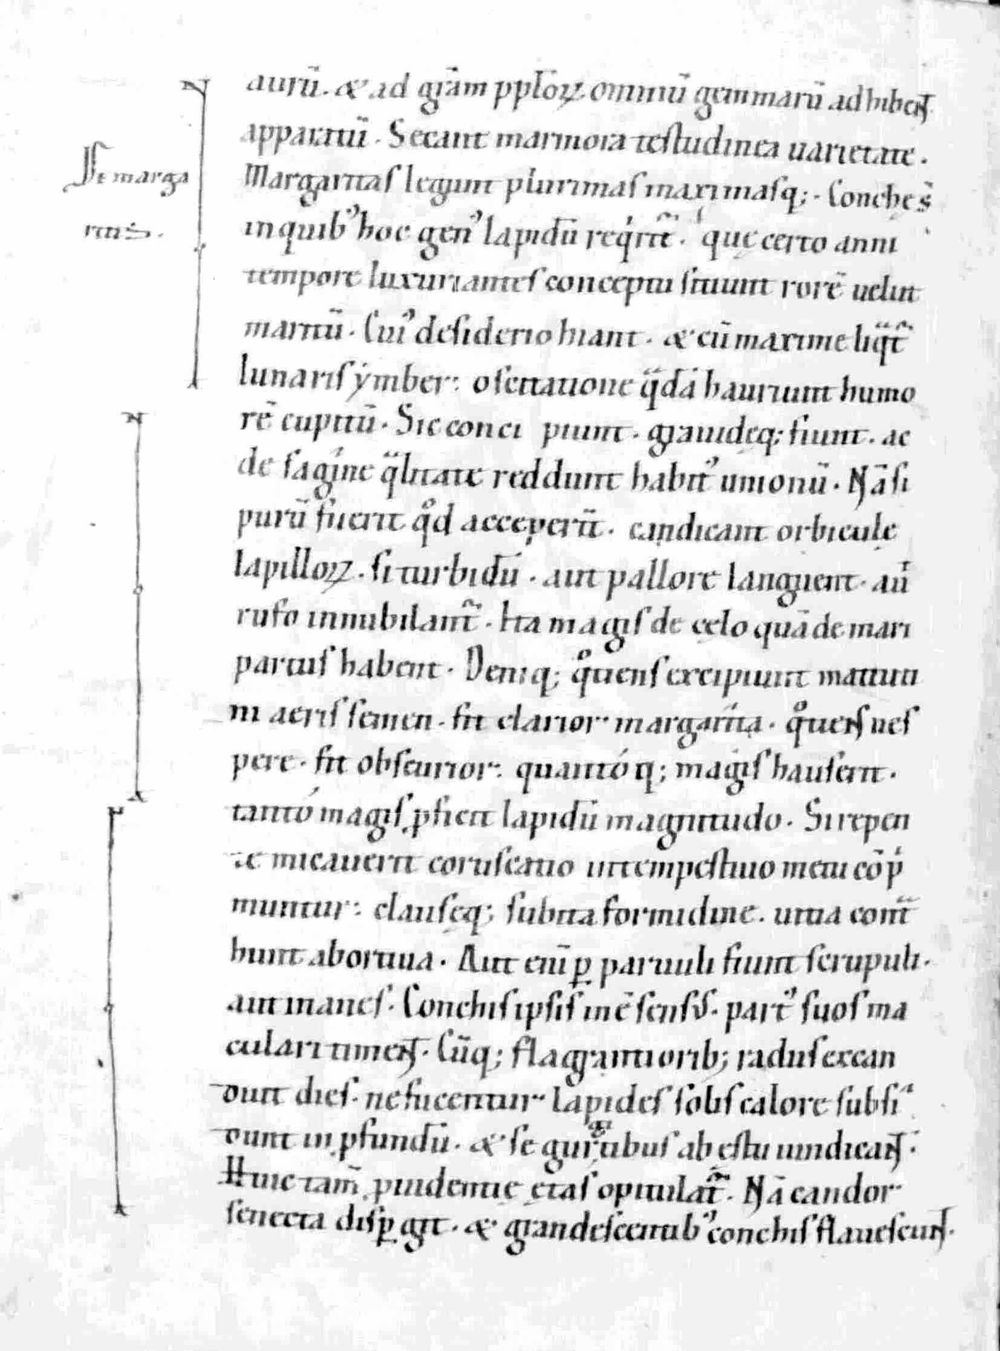 aurū. & ad grām pplōꝝ omniū gemmarū adhibent
apparatū. Secant marmora testudinea uarietate.
De marga
ritis.
Margaritas legunt plurimas maximasq;. Conchę s̄
in quib' hoc gen' lapidū reqͥrit̃. quę certo anni
tempore luxuriantes conceptu sitiunt rorē uelut
maritū. Cui' desiderio hiant. & cū maxime liqͣt̃
lunaris ymber: oscitatione qͣdā hauriunt humo
rē cupitū. Sic conci piunt. grauidęq; fiunt. ac
de sagine qͣlitate reddunt habit' unionū. Nā si
purū fuerit qͦd acceperūt. candicant orbiculę
lapilloꝝ. si turbidū. aut pallore languent. aut
rufo innubilant̃. Ita magis de cęlo quā de mari
partus habent. Deniq; qͦtiens excipiunt matuti
ni aeris semen. fit clarior margarita. qͦtiens ues
pere. fit obscurior: quantóq; magis hauserit.
tantó magis ꝓficit lapidū magnitudo. Si repen
te micauerit coruscatio intempestiuo metu cōpͥ
muntur: clausęq; subita formidine. uitia contͣ
hunt abortiua. Aut eni ꝑ paruuli fiunt scrupuli.
aut inanes. Conchis ipsis inē sensus. part' suos ma
culari timent. Cūq; flagrantiorib; radiis excan
duit dies. ne fucentur lapides solis calore subsi
dunt in ꝓfundū. & se gurgitibus ab ęstu uindicant.
Huic tam̄ ꝓuidentię ętas opitulat̃. Nā candor
senecta disꝑgit. & grandescentib' conchis flauescunt.